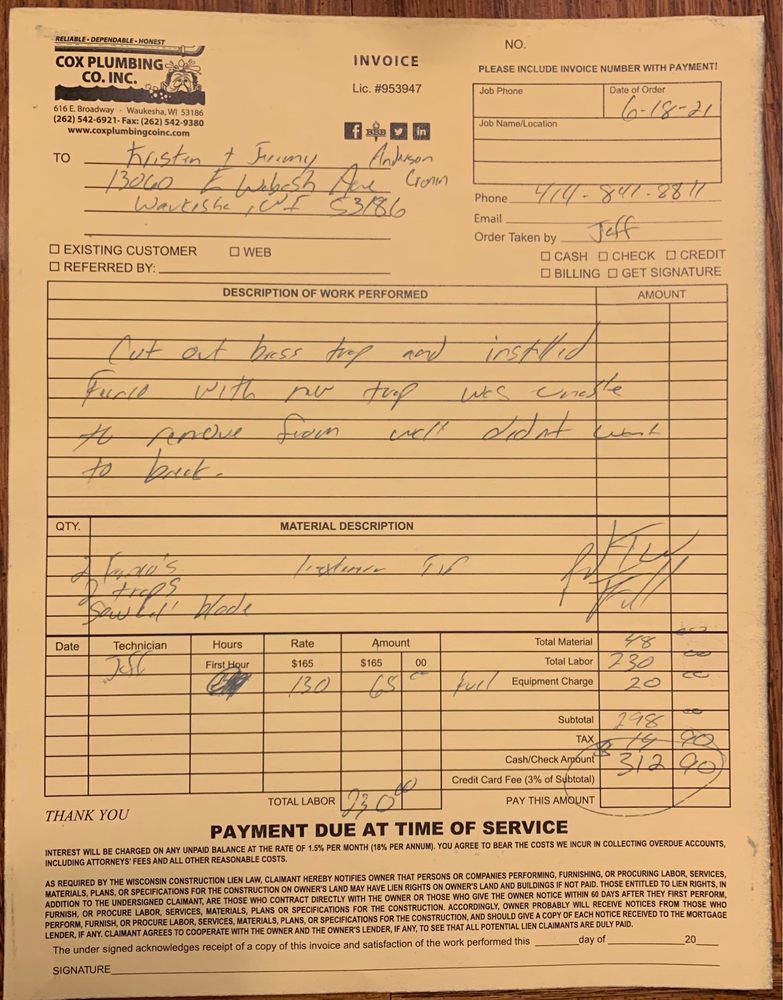 RELIABLE • DEPENDABLE • HONEST
COX PLUMBING
CO. INC.
616 E. Broadway · Waukesha, WI 53186
(262) 542-6921 · Fax: (262) 542-9380
www.coxplumbingcoinc.com
INVOICE
Lic. #953947
f BBB in
NO.
PLEASE INCLUDE INVOICE NUMBER WITH PAYMENT!
Job Phone Date of Order
6-18-21
Job Name/Location
TO Kristin + Jimmy Anderson
13060 E Wabash Ave Cronin
Waukesha, WI 53186
Phone 414-841-8811
Email
Order Taken by Jeff
☐ EXISTING CUSTOMER ☐ WEB
☐ REFERRED BY:
☐ CASH ☐ CHECK ☐ CREDIT
☐ BILLING ☐ GET SIGNATURE
DESCRIPTION OF WORK PERFORMED AMOUNT
Cut out brass trap and installed
Fernco with new trap was unable
to remove from wall didnt want
to break.
QTY. MATERIAL DESCRIPTION
2 Fernco's
2 traps
Sawzall blade
Date Technician Hours Rate Amount
Jeff First Hour $165 $165 00
130 65 00
Total Material 48 00
Total Labor 230 00
Fuel Equipment Charge 20 00
Subtotal 298 00
TAX 14 90
Cash/Check Amount $ 312 90
Credit Card Fee (3% of Subtotal)
TOTAL LABOR 230 00 PAY THIS AMOUNT
THANK YOU
PAYMENT DUE AT TIME OF SERVICE
INTEREST WILL BE CHARGED ON ANY UNPAID BALANCE AT THE RATE OF 1.5% PER MONTH (18% PER ANNUM). YOU AGREE TO BEAR THE COSTS WE INCUR IN COLLECTING OVERDUE ACCOUNTS,
INCLUDING ATTORNEYS' FEES AND ALL OTHER REASONABLE COSTS.
AS REQUIRED BY THE WISCONSIN CONSTRUCTION LIEN LAW, CLAIMANT HEREBY NOTIFIES OWNER THAT PERSONS OR COMPANIES PERFORMING, FURNISHING, OR PROCURING LABOR, SERVICES,
MATERIALS, PLANS, OR SPECIFICATIONS FOR THE CONSTRUCTION ON OWNER'S LAND MAY HAVE LIEN RIGHTS ON OWNER'S LAND AND BUILDINGS IF NOT PAID. THOSE ENTITLED TO LIEN RIGHTS, IN
ADDITION TO THE UNDERSIGNED CLAIMANT, ARE THOSE WHO CONTRACT DIRECTLY WITH THE OWNER OR THOSE WHO GIVE THE OWNER NOTICE WITHIN 60 DAYS AFTER THEY FIRST PERFORM,
FURNISH, OR PROCURE LABOR, SERVICES, MATERIALS, PLANS OR SPECIFICATIONS FOR THE CONSTRUCTION. ACCORDINGLY, OWNER PROBABLY WILL RECEIVE NOTICES FROM THOSE WHO
PERFORM, FURNISH, OR PROCURE LABOR, SERVICES, MATERIALS, PLANS, OR SPECIFICATIONS FOR THE CONSTRUCTION, AND SHOULD GIVE A COPY OF EACH NOTICE RECEIVED TO THE MORTGAGE
LENDER, IF ANY. CLAIMANT AGREES TO COOPERATE WITH THE OWNER AND THE OWNER'S LENDER, IF ANY, TO SEE THAT ALL POTENTIAL LIEN CLAIMANTS ARE DULY PAID.
The under signed acknowledges receipt of a copy of this invoice and satisfaction of the work performed this ______ day of ______ 20___
SIGNATURE